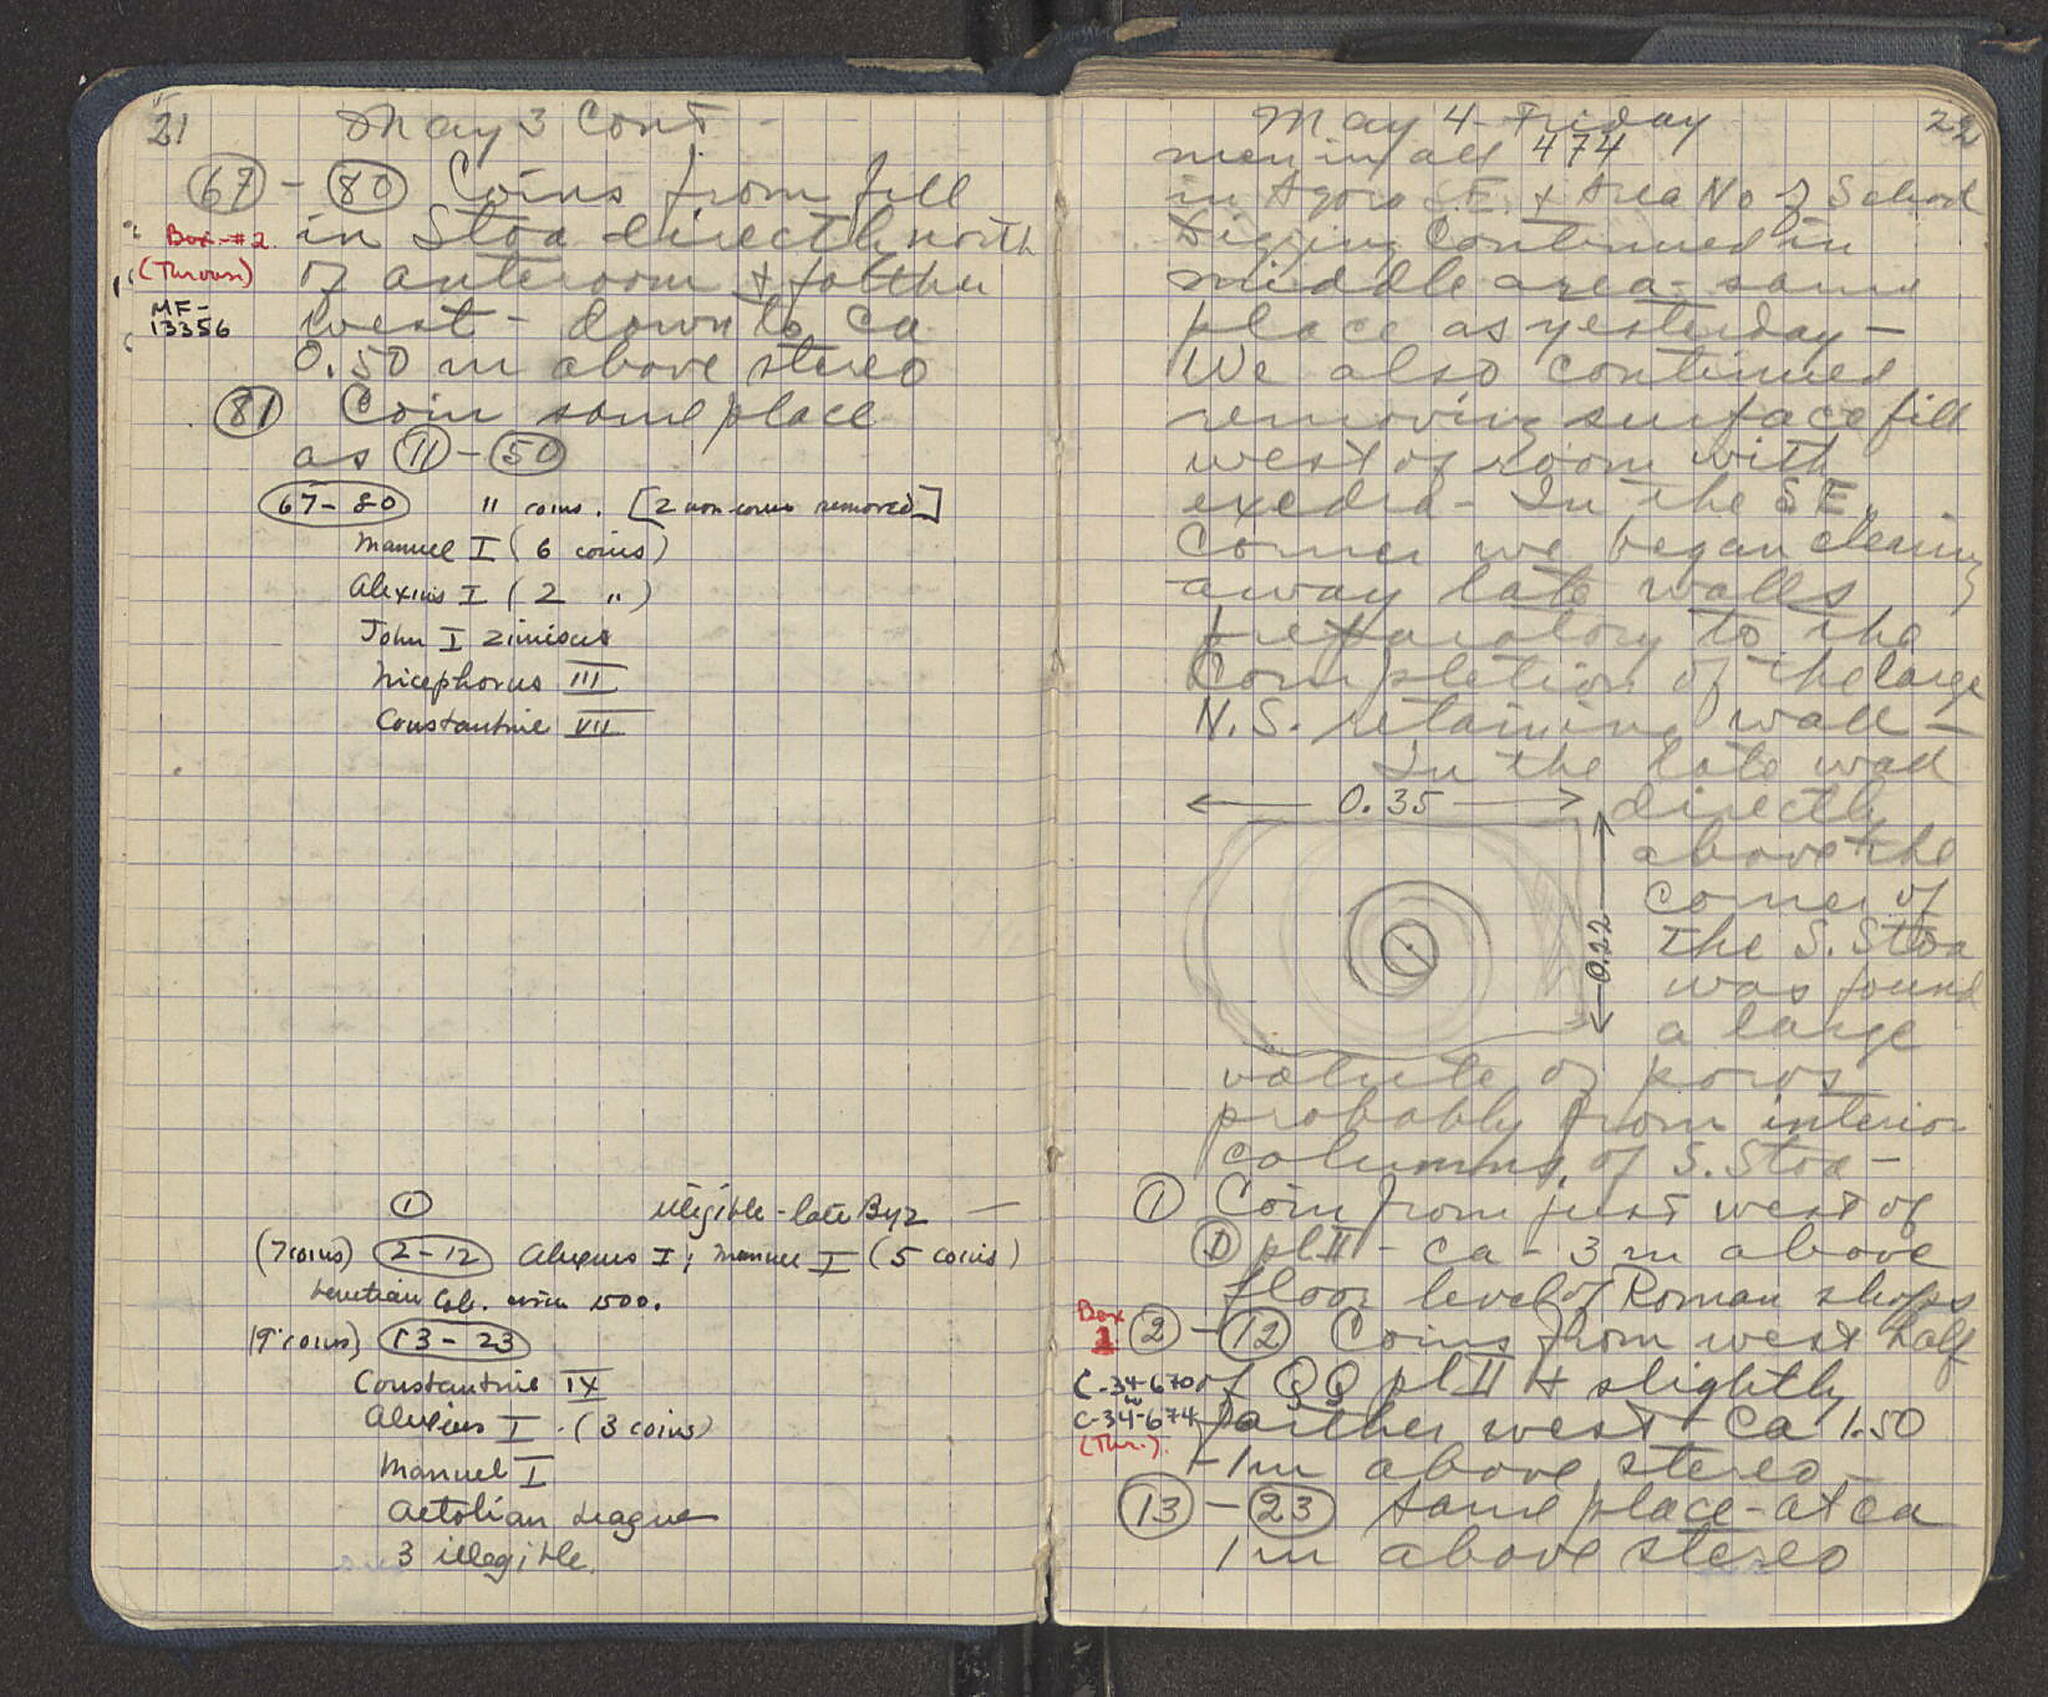 21
May 3 Cont -
67 - 80 Coins from fill
in Stoa directly north
of anteroom & farther
west - down to ca
0.50 m above stereo
Box #2.
(Thrown)
MF-
13356
81 Coin same place
as 11 - 50
67-80 11 coins. [2 non-coins removed]
Manuel I (6 coins)
Alexius I (2 ")
John I Zimisces
Nicephorus III
Constantine VII
1 illegible - late Byz —
(7 coins) 2-12 Alexius I; Manuel I (5 coins)
Venetian Col. circa 1500.
(9 coins) 13-23
Constantine IX
Alexius I. (3 coins)
Manuel I
Aetolian League
3 illegible.
22
May 4 - Friday
men in all 474
in Agora S.E. & Area No of School
Digging continued in
middle area - same
place as yesterday —
We also continued
removing surface fill
west of room with
exedra - In the SE.
Corner we began clearing
away late walls
preparatory to the
Completion of the large
N.S. retaining wall —
In the late wall
0.35
0.22
directly
above the
corner of
the S. Stoa
was found
a large
volute of poros
probably from interior
columns of S. Stoa -
1 Coin from just west of
D pl II - ca - 3 m above
floor level of Roman shops
Box
1
2 - 12 Coins from west half
of QQ pl II & slightly
farther west - Ca 1.50
- 1 m above stereo -
C-34-670
to
C-34-674
(Thr.).
13 - 23 same place - at ca
1 m above stereo